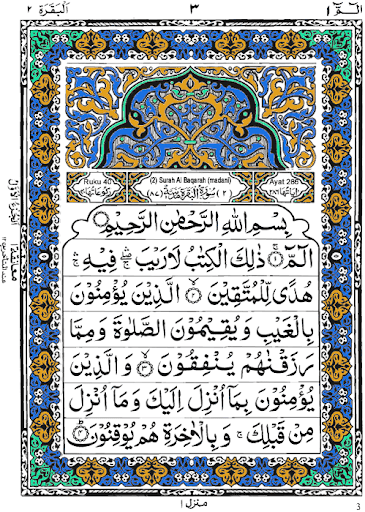 الٓمّٓ ١ ٣ اَلْبَقَرَة ٢
Ruku 40 (2) Surah Al Baqarah (madani) Ayat 286
اٰيَاتُهَا ٢٨٦ (٢) سُوْرَةُ الْبَقَرَةِ مَدَنِيَّةٌ (٨٧) رُكُوْعَاتُهَا ٤٠
بِسْمِ اللهِ الرَّحْمٰنِ الرَّحِيْمِ
الٓمّٓ ۚ ذٰلِكَ الْكِتٰبُ لَا رَيْبَ ۛ فِيْهِ ۛ
هُدًى لِّلْمُتَّقِيْنَ ۙ الَّذِيْنَ يُؤْمِنُوْنَ
بِالْغَيْبِ وَيُقِيْمُوْنَ الصَّلٰوةَ وَمِمَّا
رَزَقْنٰهُمْ يُنْفِقُوْنَ ۙ وَالَّذِيْنَ
يُؤْمِنُوْنَ بِمَآ اُنْزِلَ اِلَيْكَ وَمَآ اُنْزِلَ
مِنْ قَبْلِكَ ۚ وَبِالْاٰخِرَةِ هُمْ يُوْقِنُوْنَ
الجزء الاول
معانقة ١
منزل ١
3